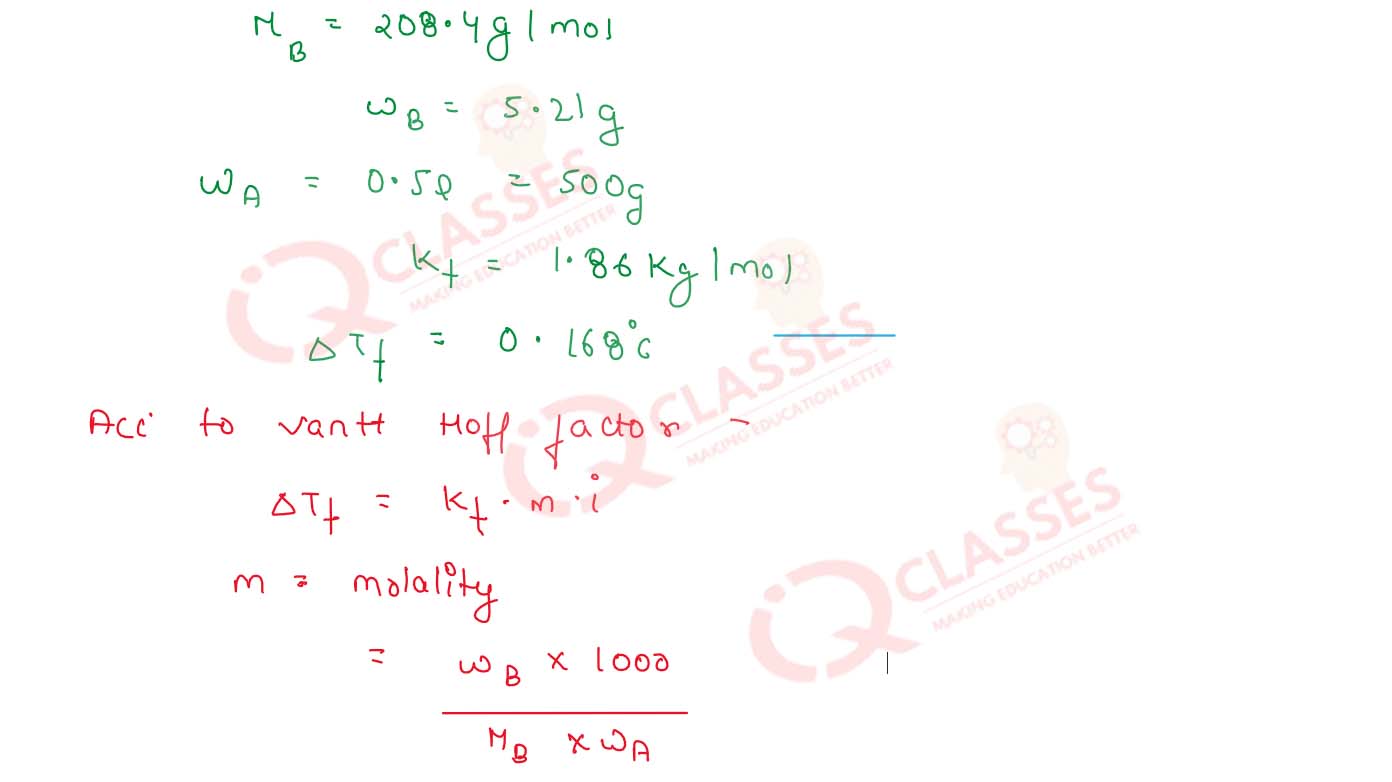 M_B = 208.4g/mol
ω_B = 5.21g
ω_A = 0.5l = 500g
K_f = 1.86 Kg/mol
ΔT_f = 0.168°c
Acc to vantt Hoff factor -
ΔT_f = K_f . m . i
m = molality
= ω_B × 1000
M_B × ω_A
iQ CLASSES
MAKING EDUCATION BETTER
iQ CLASSES
MAKING EDUCATION BETTER
iQ CLASSES
MAKING EDUCATION BETTER